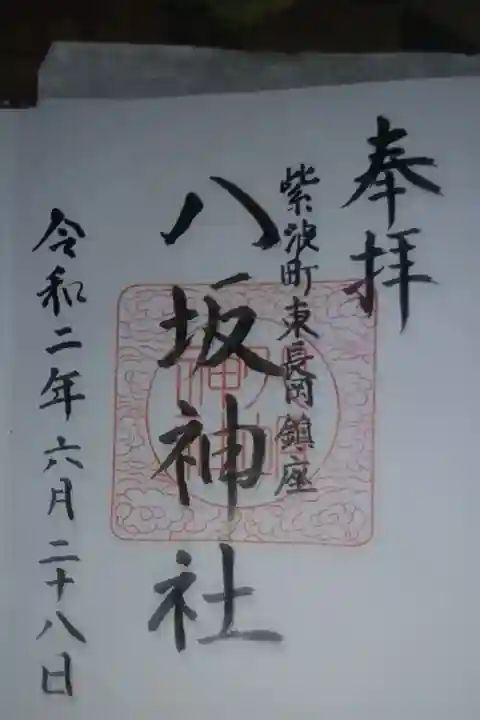 奉拝
紫波町東長岡鎮座
八坂神社
令和二年六月二十八日